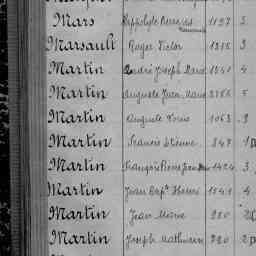 Mars Hippolyte 1197 3
Marsault Roger Victor 1315 3
Martin André Joseph 1341 4
Martin Auguste Jean Marie 5
Martin Auguste Louis 1063 3
Martin Francis Etienne 347 1
Martin François Pierre Jean 1424 3
Martin Jean Bapte 1541 4
Martin Jean Marie 980 2
Martin Joseph Mathurin 920 2